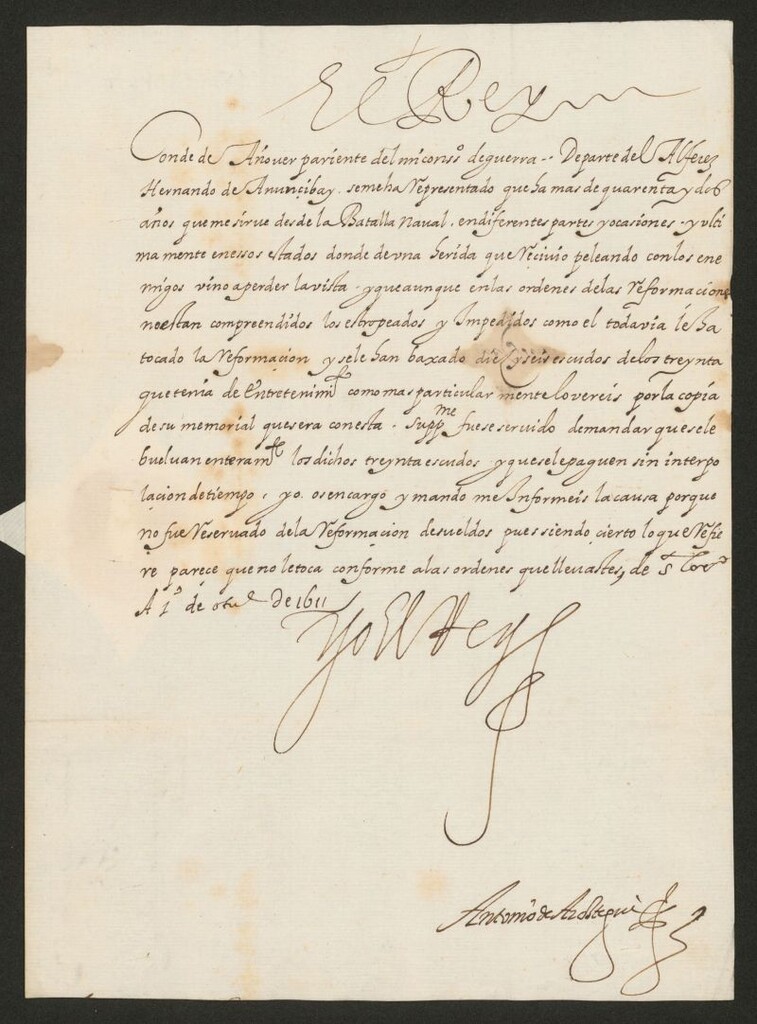 El Rey
Conde de Añover pariente del mi consº de guerra. De parte del Alferez
Hernando de Anuncibay. se me ha Representado que ha mas de quarenta y dos
años que me sirue desde la Batalla Naual. en diferentes partes y ocasiones. y vlti
mamente en essos estados donde de vna herida que Reciuio peleando con los ene
migos vino a perder la vista. y que aunque en las ordenes de las Reformaciones
no estan compreendidos los estropeados y Impedidos como el todavia le ha
tocado la Reformacion y se le han baxado diez y seis escudos de los treynta
que tenia de Entretenimᵗᵒ como mas particularmente lo vereis por la copia
de su memorial que sera con esta. Suppᵐᵉ fuese seruido de mandar que se le
bueluan enteramᵗᵉ los dichos treynta escudos y que se le paguen sin interpo
lacion de tiempo, yo os encargo y mando me Informeis la causa porque
no fue Reseruado de la Reformacion de sueldos pues siendo cierto lo que Refie
re parece que no le toca conforme a las ordenes que lleuastes, de Sᵗ Lorᵒ
A 1º de otuᵉ De 1611
Yo El Rey
Antonio de Aroztegui